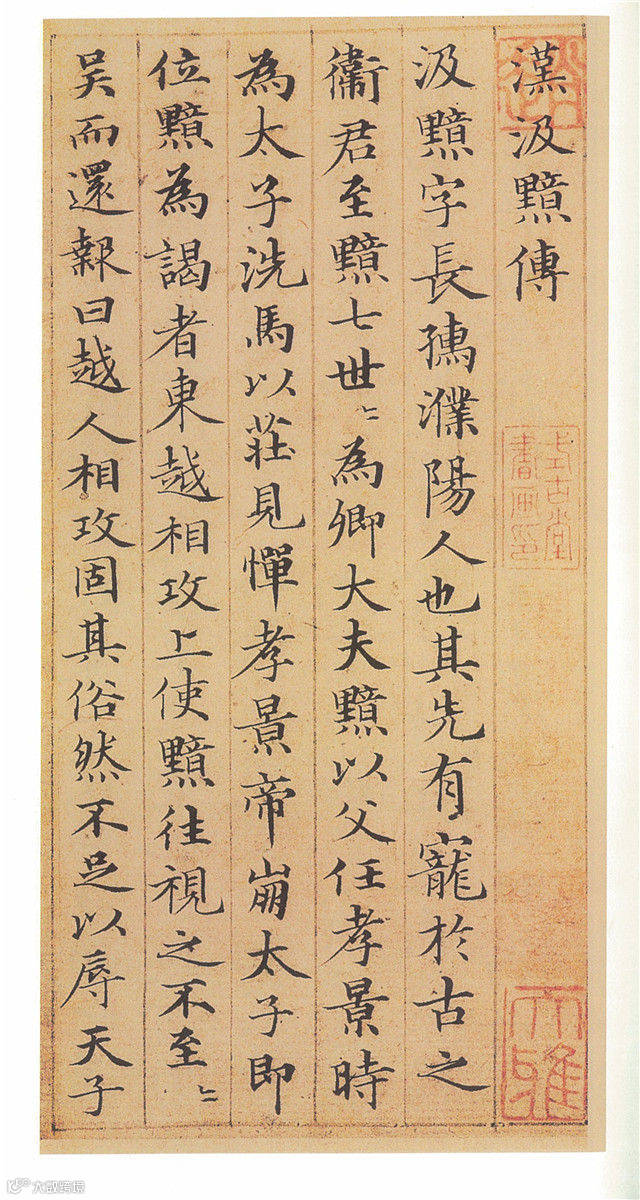 漢汲黯傳
汲黯字長孺濮陽人也其先有寵於古之
衞君至黯七世〻為卿大夫黯以父任孝景時
為太子洗馬以莊見憚孝景帝崩太子即
位黯為謁者東越相攻上使黯往視之不至〻
吳而還報曰越人相攻固其俗然不足以辱天子
式古堂
書画印
大雅
大数跨境